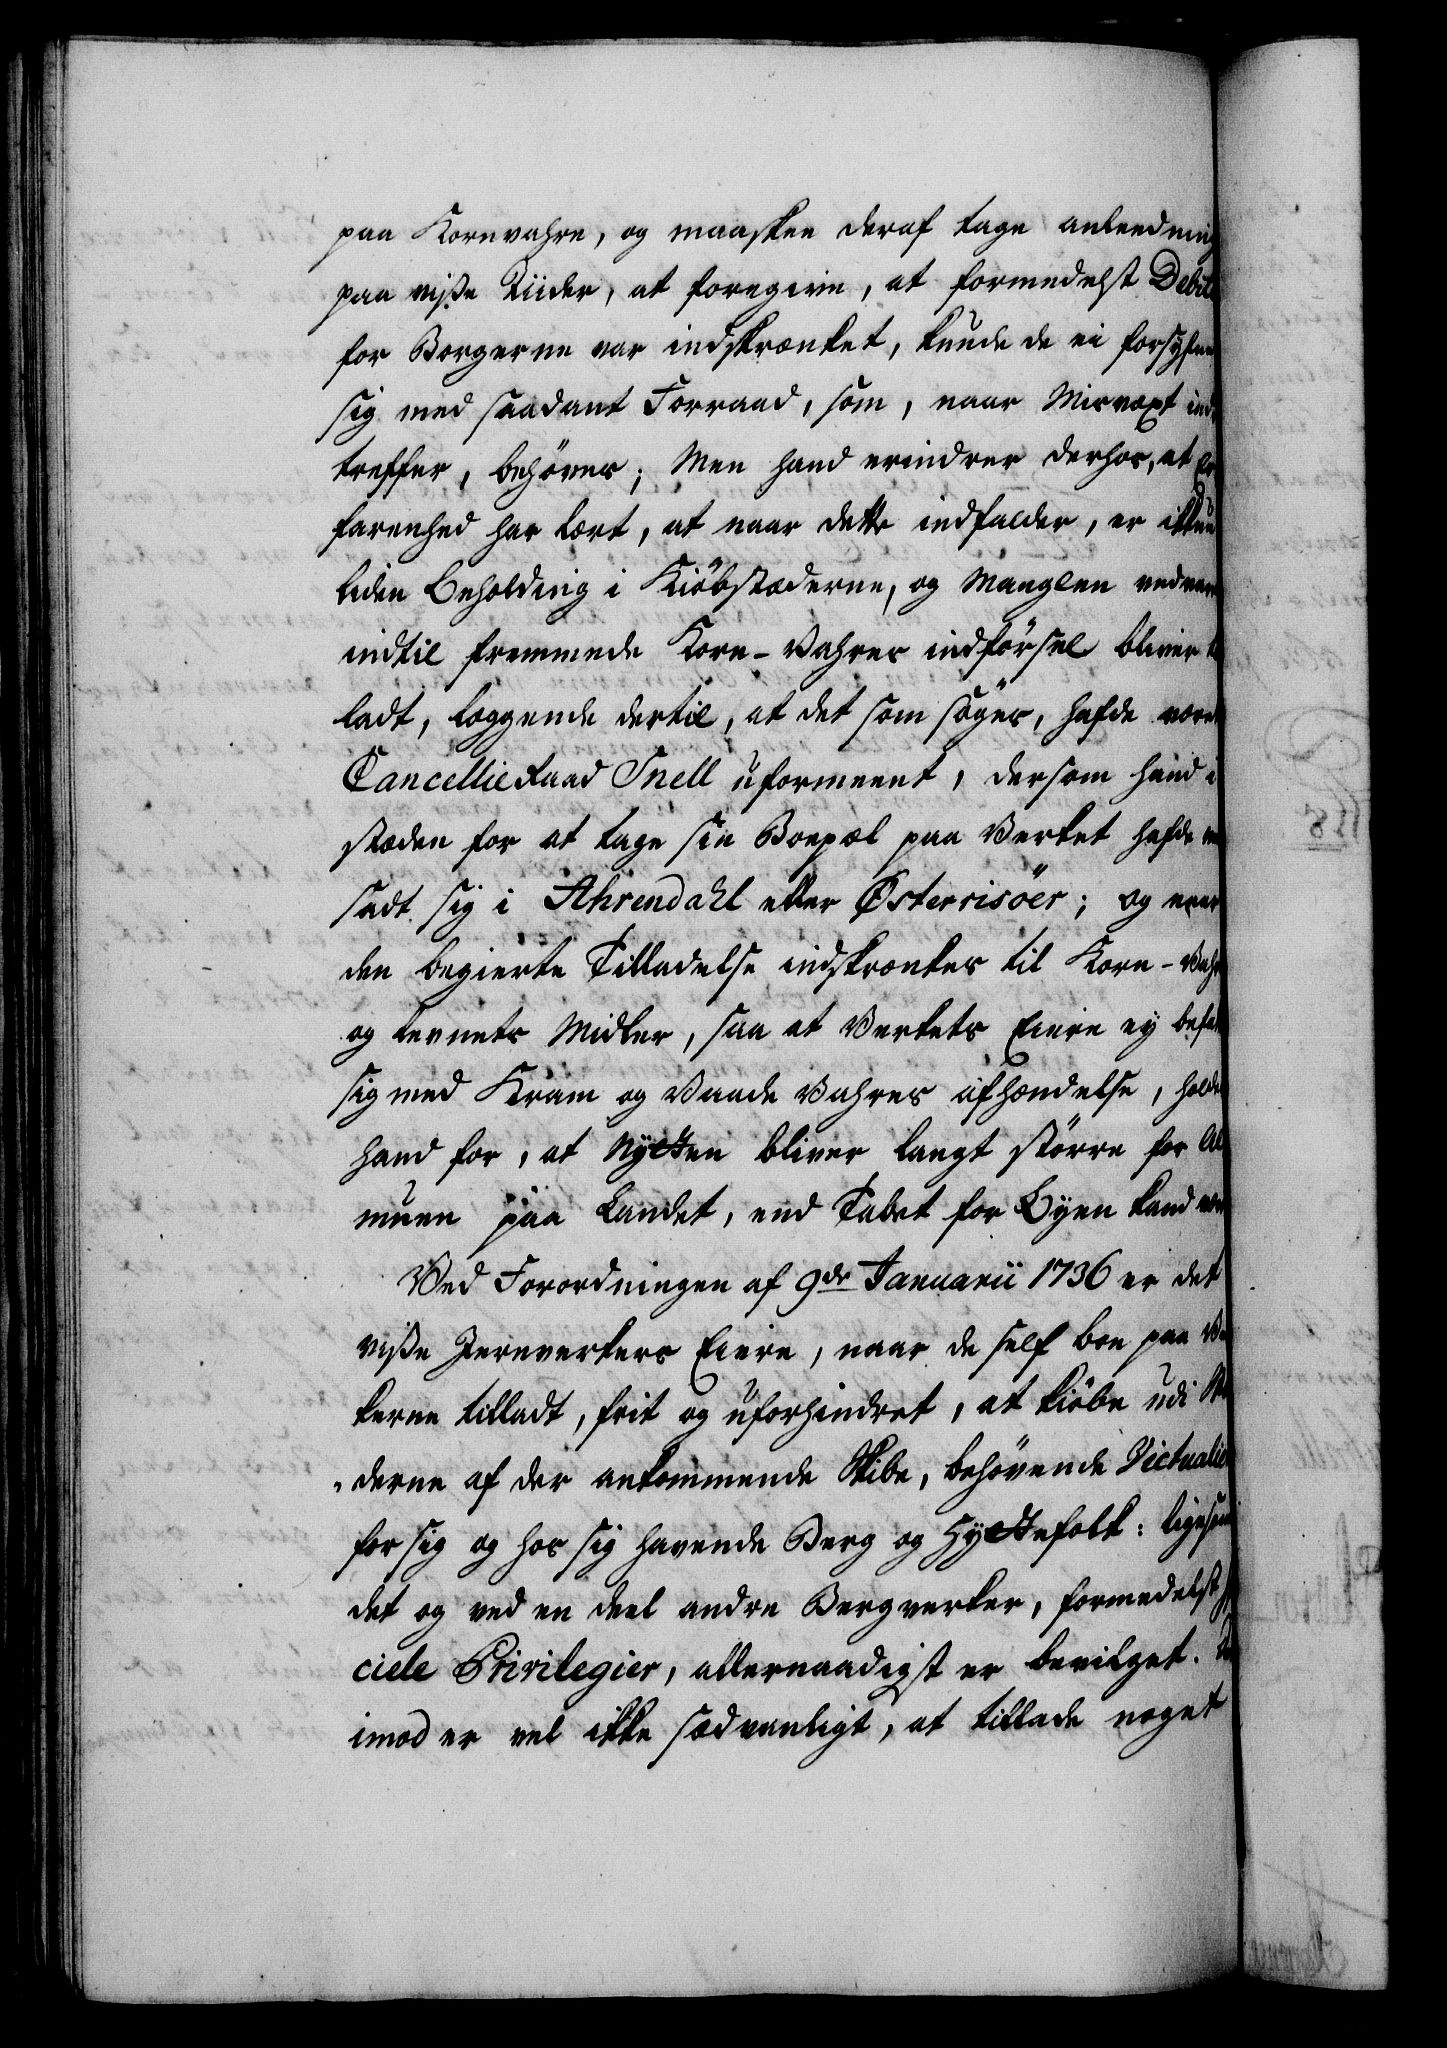 paa Kornvahre, og maaskee deraf tage anleedning
paa visse Tiider, at foregive, at formedelst Debit
for Borgerne var indskrænket, kunde de ei forsyhne
sig med saadant Forraad, som, naar Misvæxt ind
treffer, behøves; Men hand erindrer derhos, at Er
farenhed har lært, at naar dette indfalder, er ikkun
liden Beholding i Kiöbstæderne, og Manglen vedvarer
indtil fremmede Korn-Vahres indförsel bliver til
ladt, læggende dertil, at det som söges, hafde været
Cancellieraad Snell uformeent, dersom hand i
stæden for at tage sin Boepæl paa Verket hafde ned
sadt sig i Ahrendahl eller Østerrisöer; og naar
den begierte Tilladelse indskrænkes til Korn-Vahre
og Levnets Midler, saa at Verkets Eiere ey befatter
sig med Kram og Vaade Vahres afhændelse, holder
hand for, at Nytten bliver langt större for Al
muen paa Landet, end Tabet for Byen kand være
Ved Forordningen af 9de Januarii 1736 er det
visse Jernverkers Eiere, naar de self boe paa Ver
kerne tilladt, frit og uforhindret, at kiöbe udi Stæ
derne af der ankommende Skibe, behövende Victualier
for sig og hos sig havende Berg og Hyttefolk: ligesom
det og ved en deel andre Bergverker, formedelst spe
ciele Privilegier, allernaadigst er bevilget. Der
imod er vel ikke sædvanligt, at tillade noget